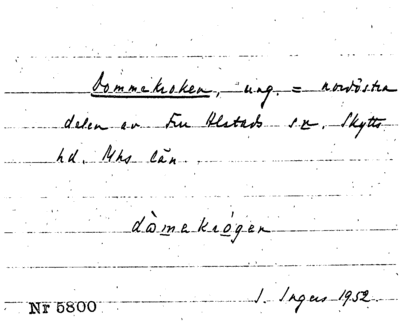 Dommekroken, ung. = nordöstra
delen av Fru Alstads sn. Skytts
hd. Mhs län.
dòmekrógen
I. Ingers 1952
Nr 5800